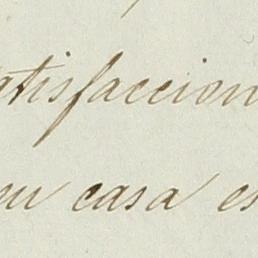 atisfaccion
su casa es